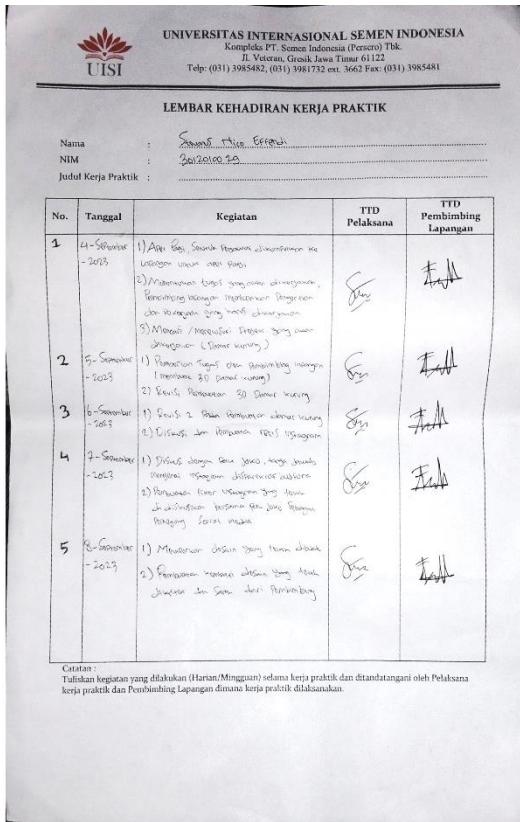 UISI
UNIVERSITAS INTERNASIONAL SEMEN INDONESIA
Kompleks PT. Semen Indonesia (Persero) Tbk.
Jl. Veteran, Gresik Jawa Timur 61122
Telp: (031) 3985482, (031) 3981732 ext. 3662 Fax: (031) 3985481
LEMBAR KEHADIRAN KERJA PRAKTIK
Nama : Effendi
NIM : 3012010029
Judul Kerja Praktik :
No. Tanggal Kegiatan TTD Pelaksana TTD Pembimbing Lapangan
1 4-September-2023
1) Apel Pagi, Seluruh dikumpulkan ke
lapangan untuk apel pagi
2) tugas yang akan dikerjakan,
Pembimbing lapangan
dan yang harus dikerjakan
3) Mencari / yang akan
dikerjakan (Damar kurung)
2 5-September-2023
1) Pemberian Tugas oleh Pembimbing lapangan
(membuat 3D Damar kurung)
2) Revisi Pembuatan 3D Damar kurung
3 6-September-2023
1) Revisi 2 Pada Pembuatan damar kurung
2) Diskusi dan Pembuatan instagram
4 7-September-2023
1) Diskusi dengan Joko,
mengenai instagram
2) Pembuatan instagram yang telah
di diskusikan bersama Joko Sebagai
Pemegang Social media
5 8-September-2023
1) desain yang telah dibuat
2) Pembuatan desain yang telah
dan Saran dari Pembimbing
Catatan :
Tuliskan kegiatan yang dilakukan (Harian/Mingguan) selama kerja praktik dan ditandatangani oleh Pelaksana
kerja praktik dan Pembimbing Lapangan dimana kerja praktik dilaksanakan.